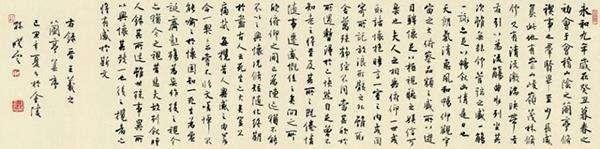 永和九年歲在癸丑暮春之
初會于會稽山陰之蘭亭脩
禊事也羣賢畢至少長咸
集此地有崇山峻嶺茂林脩
竹又有清流激湍映帶左
右引以為流觴曲水列坐其
次雖無絲竹管弦之盛一觴
一詠亦足以暢敘幽情是日也
天朗氣清惠風和暢仰觀宇
宙之大俯察品類之盛所以遊
目騁懷足以極視聽之娛信可
樂也夫人之相與俯仰一世或
取諸懷抱悟言一室之內或因
寄所託放浪形骸之外雖趣
舍萬殊靜躁不同當其欣於
所遇暫得於己快然自足不
知老之將至及其所之既倦情
隨事遷感慨係之矣向之所
欣俛仰之間以為陳迹猶不能
不以之興懷況脩短隨化終期
於盡古人云死生亦大矣豈不
痛哉每攬昔人興感之由若
合一契未嘗不臨文嗟悼不
能喻之於懷固知一死生為虛
誕齊彭殤為妄作後之視今
亦由今之視昔悲夫故列敘時
人錄其所述雖世殊事異所
以興懷其致一也後之攬者
亦將有感於斯文
右錄晉王羲之
蘭亭集序
己丑年夏日於金陵